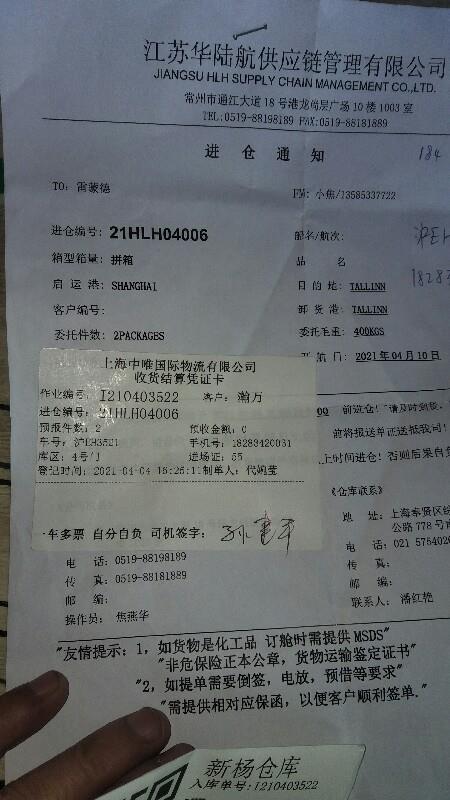 江苏华陆航供应链管理有限公司
JIANGSU HLH SUPPLY CHAIN MANAGEMENT CO.,LTD.
常州市通江大道18号港龙尚层广场10楼1003室
TEL:0519-88198189 FAX:0519-88181889
进仓通知
184
TO: 雷蒙德
FM: 小焦/13585337722
进仓编号: 21HLH04006
船名/航次:
沪EH
箱型箱量: 拼箱
品 名
启运港: SHANGHAI
目的地: TALLINN
18283
客户编号:
卸货港: TALLINN
委托件数: 2PACKAGES
委托毛重: 400KGS
航日: 2021年04月10日
上海中唯国际物流有限公司
收货结算凭证卡
作业编号: I210403522 客户: 瀚万
进仓编号: 21HLH04006
预报件数: 2 预收金额: 0
车号: 沪EH3521 手机号: 18283420031
库区: 4号门 进场证: 55
登记时间: 2021-04-04 16:26:11制单人: 代婉莹
一车多票 自分自负 司机签字: 孙建平
前进仓!
前将报送单证送抵我司!
上时间进仓! 否则后果自负
《仓库联系》
地 址: 上海奉贤区
公路778号
电 话: 021 5754020
传 真:
邮 编:
联系人: 潘红艳
电 话: 0519-88198189
传 真: 0519-88181889
邮 编:
操作员: 焦燕华
"友情提示: 1, 如货物是化工品 订舱时需提供MSDS"
"非危保险正本公章, 货物运输鉴定证书"
"2, 如提单需要倒签, 电放, 预借等要求"
"需提供相对应保函, 以便客户顺利签单."
新杨仓库
入库单号: I210403522